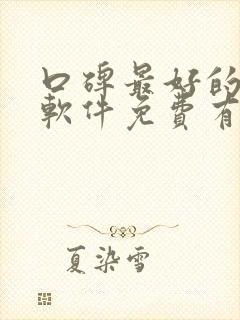 口碑最好的
軟件免費有
夏染雪